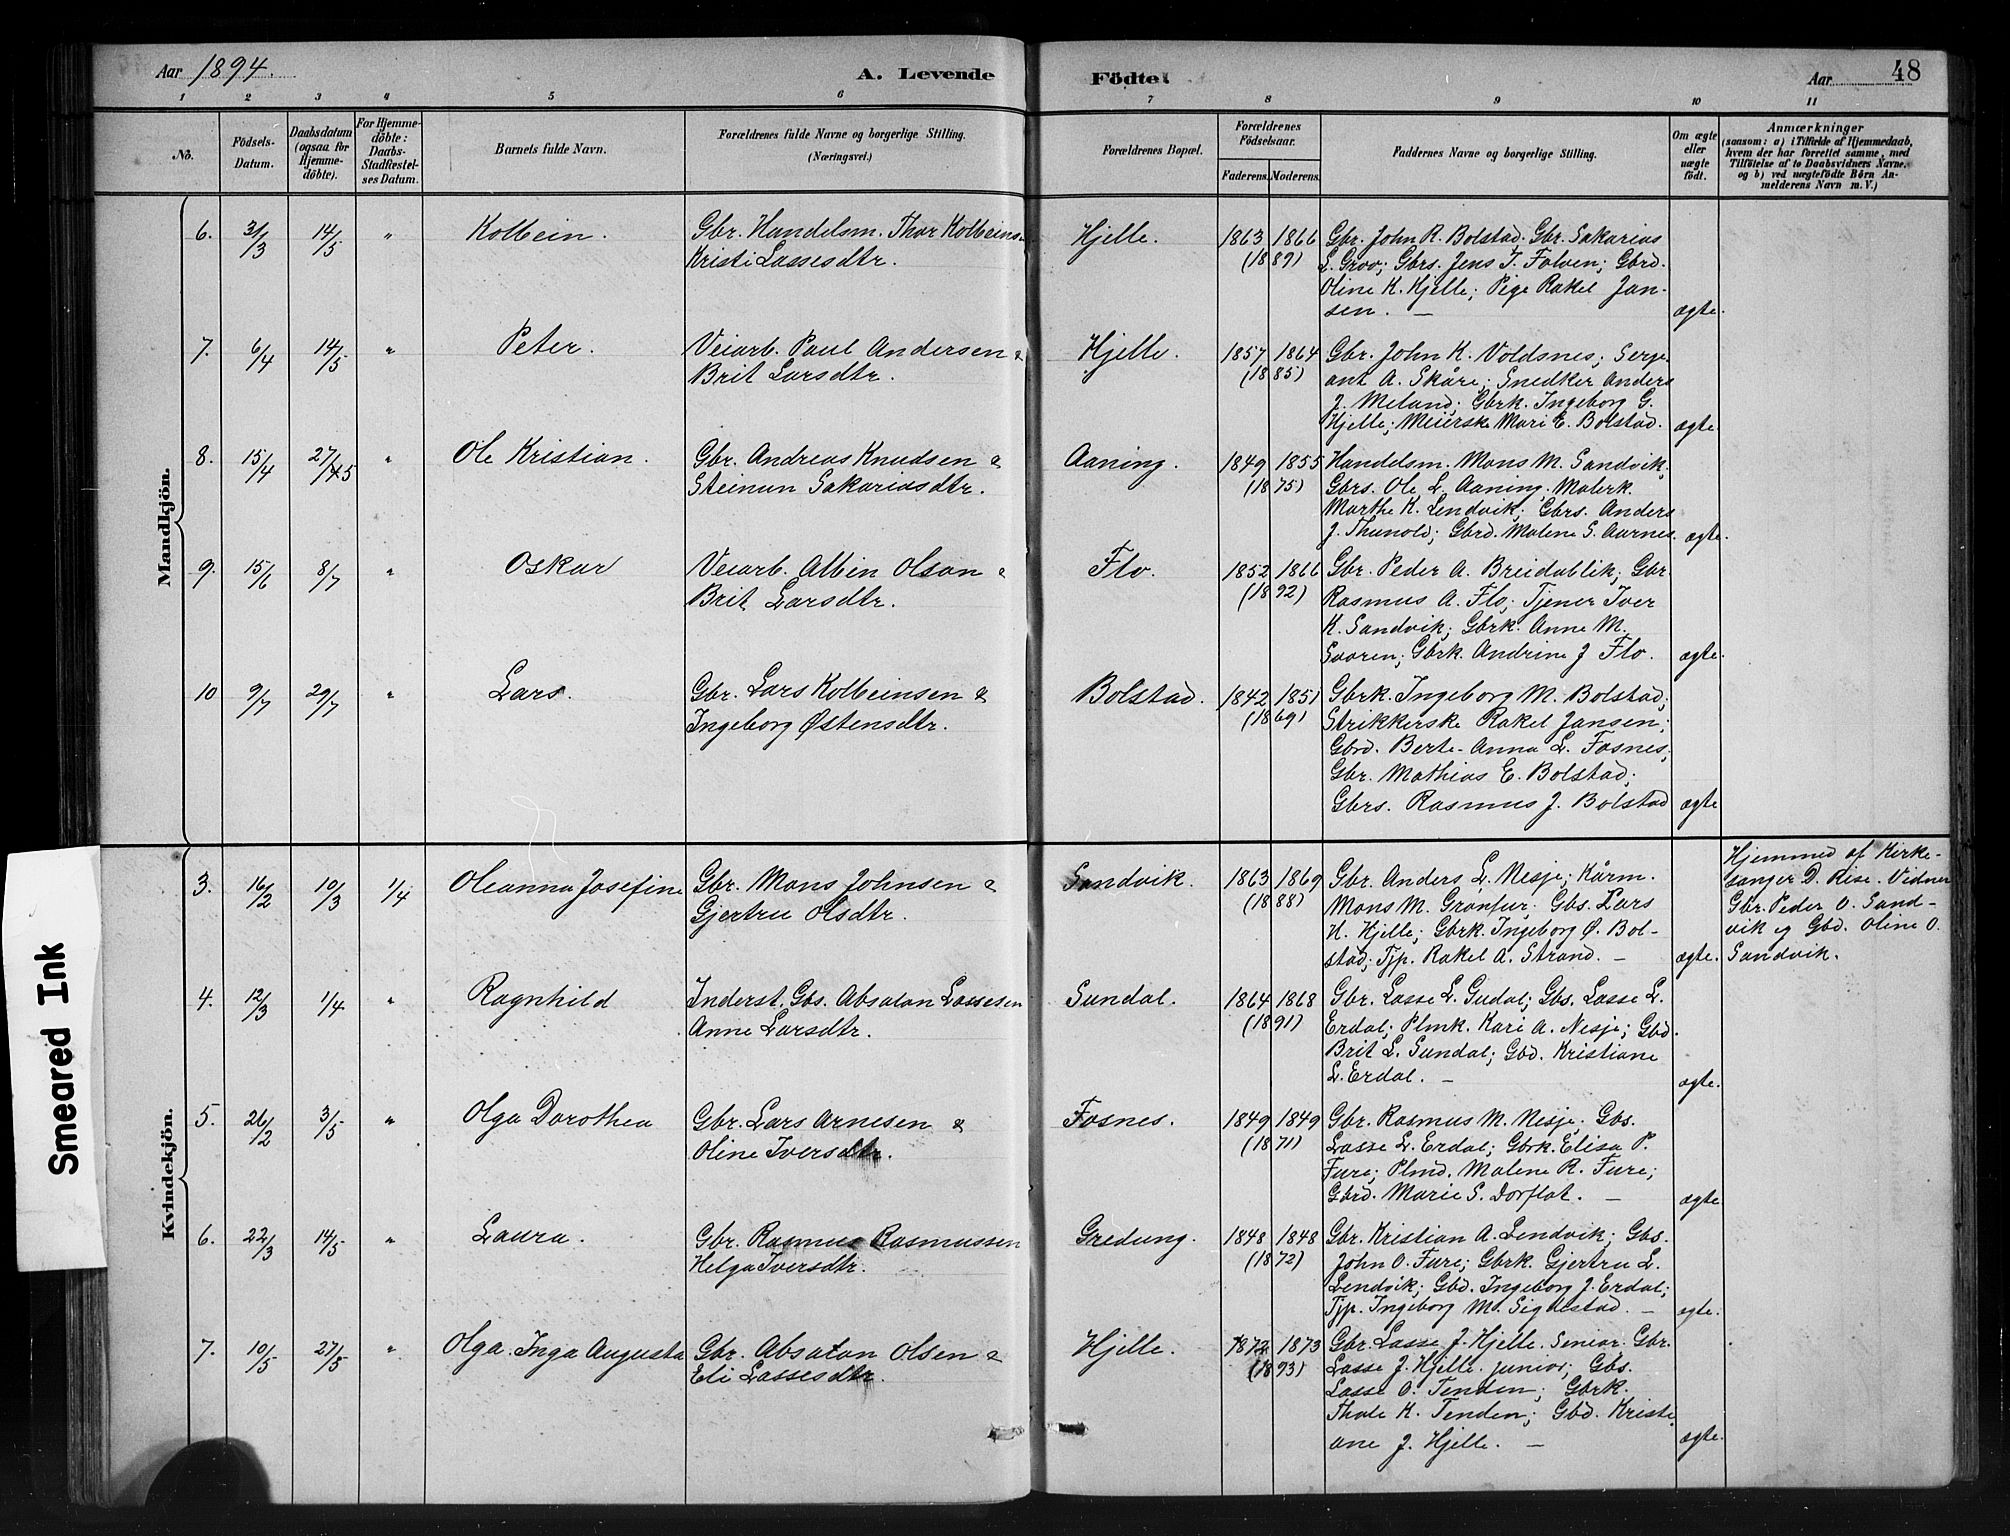 Aar 1894.
A. Levende Födte.
Aar 48
1 2 3 4 5 6 7 8 9 10 11
No.
Födsels-Datum.
Daabsdatum (ogsaa for Hjemme-döbte).
For Hjemme-döbte: Daabs-Stadfæstel-ses Datum.
Barnets fulde Navn.
Forældrenes fulde Navne og borgerlige Stilling.
(Næringsvei.)
Forældrenes Bopæl.
Forældrenes Födselsaar.
Faderens. Moderens.
Faddernes Navne og borgerlige Stilling.
Om ægte eller uægte födt.
Anmærkninger
(saasom: a) i Tilfælde af Hjemmedaab, hvem der har forrettet samme, med Tilföielse af to Daabsvidners Navne, og b) ved uægtefödte Börn An-melderens Navn m. V.)
Mandkjön.
6. 31/3 14/5 " Kolbein. Gbr. Handelsm. Thor Kolbeins. Hjelle. 1863 1866 Gbr. John R. Bolstad; Gbr. Sakarias
Kristi Lassesdtr. (1889) L. Groo; Gbrs. Jens T. Folven; Gbrd.
Oline K. Hjelle; Pige Rakel Jan-
sen. — ægte.
7. 6/4 14/5 " Peter. Veiarb. Paul Andersen & Hjelle. 1857 1864 Gbr. John K. Voldsnes; Serje-
Brit Larsdtr. (1885) ant A. Skåre; Snedker Anders
J. Meland; Gbrk. Ingeborg G.
Hjelle; Meierske Mari E. Bolstad. ægte.
8. 15/4 27/5 " Ole Kristian. Gbr. Andreas Knudsen & Aaning. 1849 1855 Handelsm. Mons M. Sandvik;
Steinun Sakariasdtr. (1875) Gbrs. Ole L. Aaning; Malerk.
Marthe K. Lendvik; Gbrs. Anders
J. Thunold; Gbrd. Malene S. Aarnes. ægte.
9. 15/6 8/7 " Oskar Veiarb. Albin Olson & Flo. 1852 1866 Gbr. Peder A. Breidablik; Gbr.
Brit Larsdtr. (1892) Rasmus A. Flo; Tjener Iver
K. Sandvik; Gbrk. Anne M.
Svoren; Gbrk. Andrine J Flo. ægte.
10 9/7 29/7 " Lars. Gbr. Lars Kolbeinsen & Bolstad. 1842 1851 Gbrk. Ingeborg M. Bolstad;
Ingeborg Østensdtr. (1869) Strikkerske Rakel Jansen;
Gbrd. Berte-Anna L. Fosnes;
Gbr. Mathias E. Bolstad;
Gbrs. Rasmus J. Bolstad ægte
Kvindekjön.
3. 16/2 10/3 1/4 Oleanna Josefine Gbr. Mons Johnsen & Sandvik. 1863 1869 Gbr. Anders L. Nesje; Kårm.
Gjertru Olsdtr. (1888) Mons M. Gronfur; Gbs. Lars
N. Hjelle; Gbrk. Ingeborg Ø. Bol-
stad; Tjp. Rakel A. Strand. — ægte.
Hjemmed. af Kirke-
sanger D. Rise. Vidner
Gbr. Peder O. Sand-
vik og Gbd. Oline O.
Sandvik.
4. 12/3 1/4 " Ragnhild Inderst. Gbs. Absalon Lassesen Sundal. 1864 1868 Gbr. Lasse L. Gudal; Gbs. Lasse L.
Anne Larsdtr. (1891) Erdal; Plmk. Kari A. Nesje; Gbd.
Brit L. Sundal; Gbd. Kristiane
L. Erdal. — ægte.
5. 26/2 3/5 " Olga Dorothea Gbr. Lars Arnesen & Fosnes. 1849 1849 Gbr. Rasmus M. Nesje; Gbs.
Oline Iversdtr. (1871) Lasse L. Erdal; Gbrk. Elisa P.
Fure; Plmd. Malene R. Fure;
Gbrd. Marie S. Dorflot. — ægte
6. 22/3 14/5 " Laura. Gbr. Rasmus Rasmussen Gredung. 1848 1848 Gbr. Kristian A. Lendvik; Gbs.
Helga Iversdtr. (1872) John O. Fure; Gbrk. Gjertru L.
Lendvik; Gbd. Ingeborg J. Erdal;
Tjp. Ingeborg M. Sigdestad. — egte.
7. 10/5 27/5 " Olga Inga Augusta Gbr. Absalon Olsen & Hjelle. 1872 1873 Gbr. Lasse J. Hjelle. Senior. Gbr.
Eli Lassesdtr. (1893) Lasse J. Hjelle. junior; Gbs.
Lasse O. Tenden; Gbrk.
Thale K. Tenden; Gbd. Kristi-
ane J. Hjelle. — ægte.
Smeared Ink